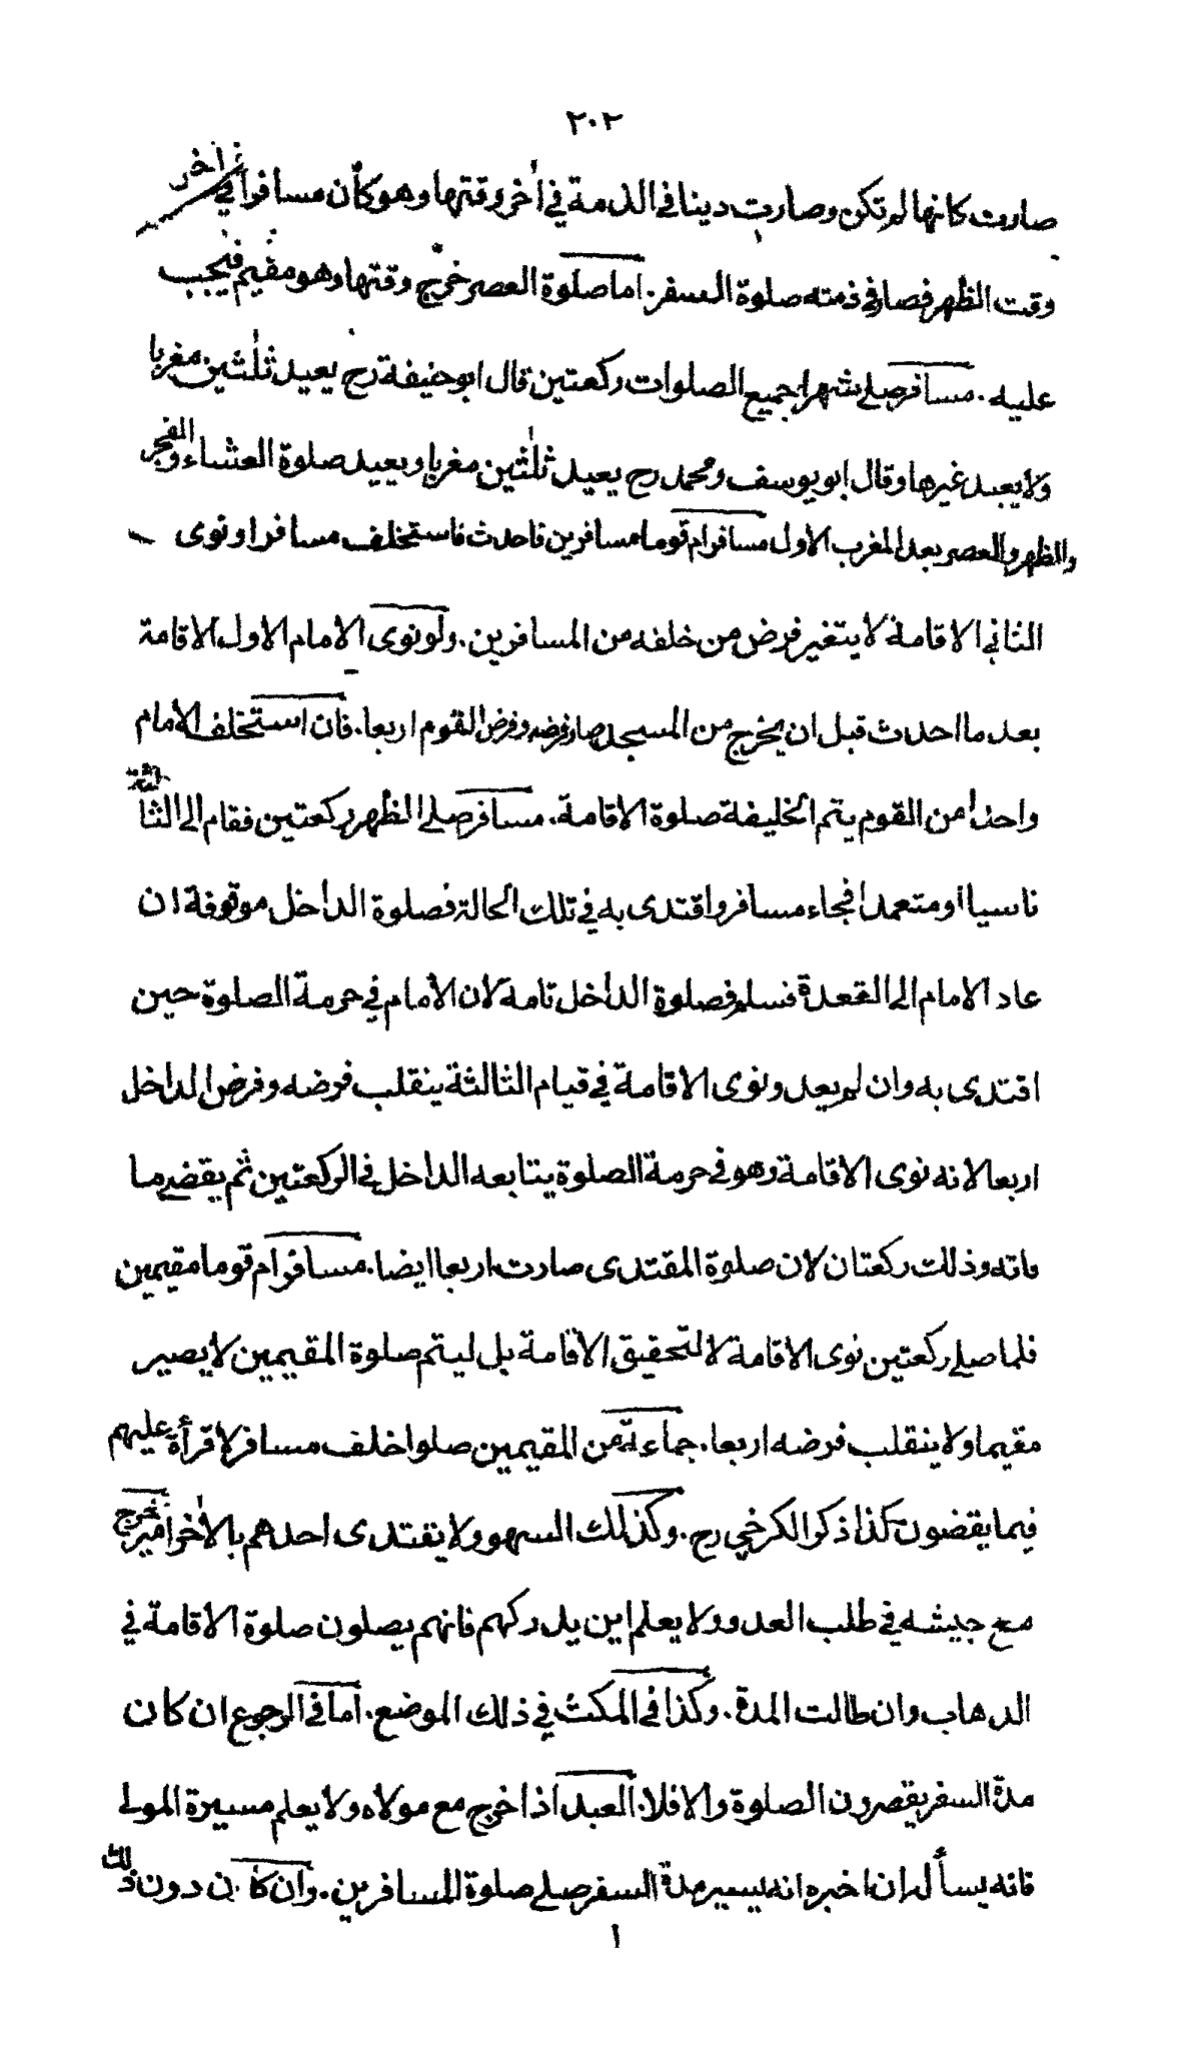 ٢٠٢
صارت كانها لم تكن وصارت دينا فى الذمة في اٰخر وقتها وهو كان مسافرا في اٰخر
وقت الظهر فصار في ذمته صلوة السفر. اما صلوة العصر خرج وقتها وهو مقيم فيجب
عليه. مسافر صلى شهرا جميع الصلوات ركعتين قال ابو حنيفة رح يعيد ثلٰثين مغربا
ولا يعيد غيرها وقال ابو يوسف ومحمد رح يعيد ثلٰثين مغربا ويعيد صلوة العشاء والفجر
والظهر والعصر بعد المغرب الاول مسافر ام قوما مسافرين فاحدث فاستخلف مسافرا ونوى
الثاني الاقامة لا يتغير فرض من خلفه من المسافرين. ولو نوى الامام الاول الاقامة
بعد ما احدث قبل ان يخرج من المسجد صار فرضه وفرض القوم اربعا. فان استخلف الامام
واحدا من القوم يتم الخليفة صلوة الاقامة. مسافر صلى الظهر ركعتين فقام الى الثالثة
ناسيا او متعمدا فجاء مسافر واقتدى به في تلك الحالة فصلوة الداخل موقوفة ان
عاد الامام الى القعدة فسلم فصلوة الداخل تامة لان الامام في حرمة الصلوة حين
اقتدى به وان لم يعد ونوى الاقامة في قيام الثالثة ينقلب فرضه وفرض الداخل
اربعا لانه نوى الاقامة وهو في حرمة الصلوة يتابعه الداخل في الركعتين ثم يقضى ما
فاته وذلك ركعتان لان صلوة المقتدى صارت اربعا ايضا. مسافر ام قوما مقيمين
فلما صلى ركعتين نوى الاقامة لا لتحقيق الاقامة بل ليتم صلوة المقيمين لا يصير
مقيما ولا ينقلب فرضه اربعا. جماعة من المقيمين صلوا خلف مسافر لا قرأة عليهم
فيما يقضون كذا ذكر الكرخي رح. وكذلك السهو ولا يقتدى احدهم بالاٰخر امير خرج
مع جيشه في طلب العدو ولا يعلم اين يدركهم فانهم يصلون صلوة الاقامة في
الذهاب وان طالت المدة. وكذا في المكث في ذلك الموضع. اما في الرجوع ان كان
مدة السفر يقصرون الصلوة والا فلا. العبد اذا خرج مع مولاه ولا يعلم مسيرة المولى
فانه يسأله ان اخبره انه يسير مدة السفر صلى صلوة المسافرين. وان كان دون ذلك